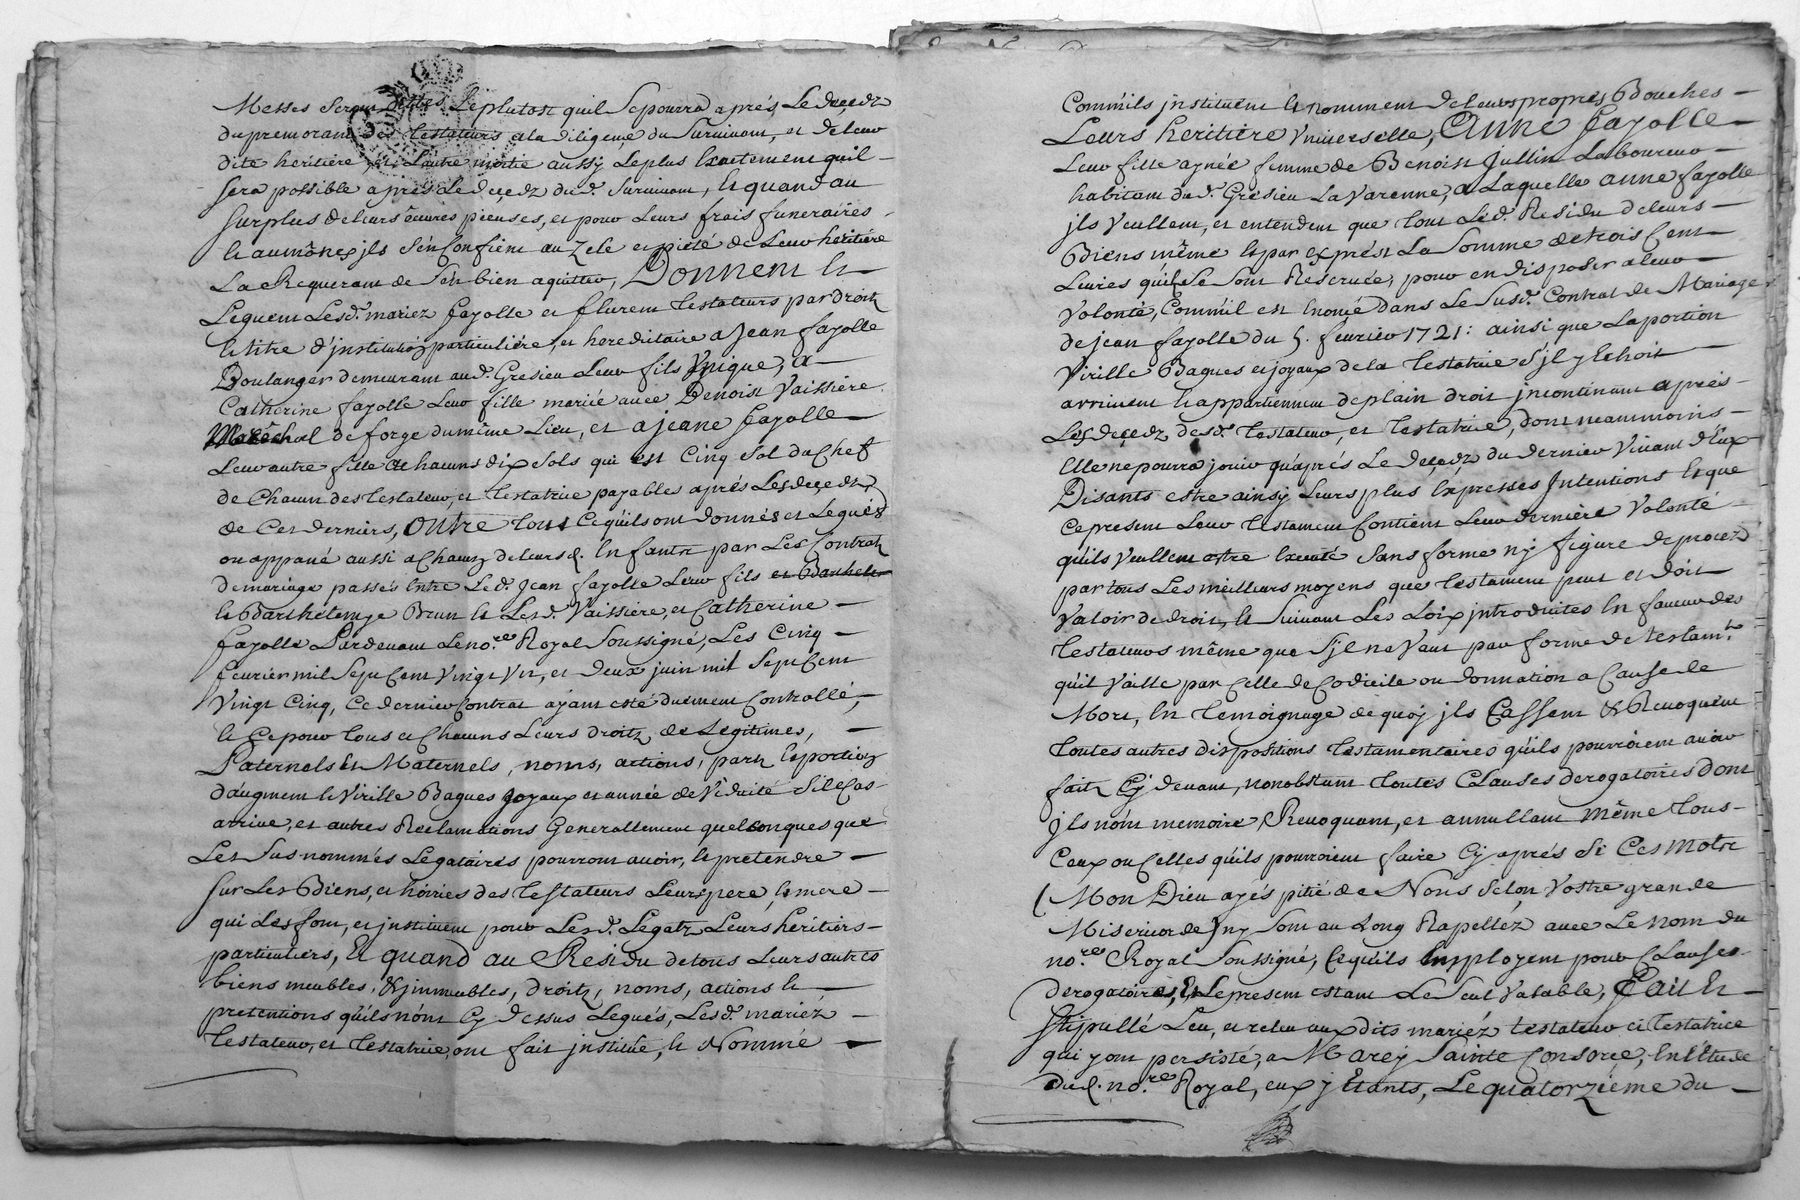 Messes seront dittes Leplutost quil Sepourra aprés Ledeçedz
dupremorant des testateurs, ala diligençe du Suruiuant, et deleur
dite heritiere, et Lautre moitié aussÿ Leplus Exactement quil –
sera possible aprés Ledeçedz dud. Suruiuant, Et quand au
surplus deleurs œuures pieuses, et pour Leurs frais funeraires –
et aumônes jls sén Confient au Zele et piété de Leur heritiere
La Requerant de sén bien aquitter, Donnent et –
Leguent Lesd. mariez fayolle et flurent testateurs par droit
et titre d'institution particuliére, et hereditaire a Jean fayolle
Boulanger demeurant aud. Gresieu Leur fils Vnique, a –
Catherine fayolle Leur fille mariée auec Benoist Vaissiere
Maréchal de forge dumême Lieu, et a jeane fayolle –
Leur autre fille a chacuns dix sols qui est Cinq sol du Chef
de Chacun des testateur, et testatrice payables aprés Lesdeçedz
de Ces derniers, outre tous Cequils ont donnés et Legués
ou appané aussi a Chacun deleursd. Enfants par Les Contratz
demariage passés Entre Led. Jean fayolle Leur fils et Barthele
et Barthélemye Brun et Lesd. Vaissiere, et Catherine –
fayolle Pardeuant Leno.re Royal Soussigné, Les Cinq –
feurier mil sept Cent Vingt Vn, et deux juin mil sept Cent
Vingt Cinq, Ce dernier Contrat aÿant esté duement Controllé, –
et Cepour tous et Chacuns Leurs droitz de Legitimes, –
Paternels Et Maternels, noms, actions, partz Et portions
daugment et Virille Bagues joyaux et année de Viduité sile Cas –
arriue, et autres Reclamations Generallement quelconques que
Les susnommés Legataires pourront auoir, et pretendre –
sur Les Biens, et hoiries des testateurs Leurs pere, et mere –
qui Les font, et jnstituent pour Lesd. Legatz Leurs héritiers –
particuliers, Et quand au Residu detous Leurs autres
biens meubles, & jmmeubles, droitz, noms, actions et –
pretentions quils nónt Cÿ dessus Legués, Lesd. mariéz –
testateur, et testatrice, ont fait jnstitué, et Nommé –
Comm'ils jnstituent et nomment deleurs propres Bouches –
Leurs heritiére Vniverselle, Anne fayolle –
Leur fille aynée femme de Benoist Jullin Laboureur –
habitant dud. Gresieu La varenne, a Laquelle anne fayolle
jls Veullent, et entendent que tout Led. Residu deleurs –
Biens même et par exprést La somme detrois Cent –
Liures quils se sont Reseruée, pour en disposer aleur –
Volonté, Comm'il est Enoncé dans Le susd. Contrat de Mariage
de jean fayolle du 5. feurier 1721: ainsi que Laportion
Virille Bagues et joyaux de la testatrice s'jl y Echoit –
arriuent et appartiennent deplain droit jncontinant aprés –
Les deçedz desd. testateur, et testatrice, dont neammoins –
Elle ne pourra jouir qu'aprés Le deçedz du dernier Viuant d'Eux
Disants estre ainsÿ Leurs plus Expresses Intentions Et que
Ce present Leur testament Contient Leur derniére Volonté –
qu'ils Veullent estre Exécuté sans forme nÿ figure deprocez
par tous Les meilleurs moyens que testament peut et doit
Valoir de droit, et suiuant Les Loix jntroduites En faueur des
testateurs même que sjl ne Vaut par forme de testam.t
quil Vaille par Celle de Codicile ou donnation a Cause de
Mort, En temoignage de quoÿ jls Cassent & Reuoquent
toutes autres dispositions testamentaires quils pourroient auoir
fait Cÿ deuant, nonobstant toutes Clauses derogatoires dont
jls nónt memoire, Reuoquant, et annullant même tous –
Ceux ou Celles qu'ils pourroient faire Cÿ aprés si Ces motz
(Mon Dieu ayés pitié de Nous selon Vostre grande
Misericorde) nÿ sont au Long Rapellez auec Le nom du
no.re Royal soussigné, Cequ'ils Employent pour Clauses –
derogatoires, Et Lepresent estant Le seul Valable, Fait Et –
stipullé Leu, et releu aux dits mariéz testateur et testatrice
qui y ont persisté, a Marcÿ Sainte Consorce, En l'étude
dud. no.re Royal, eux ÿ Etants, Le quatorziéme du –